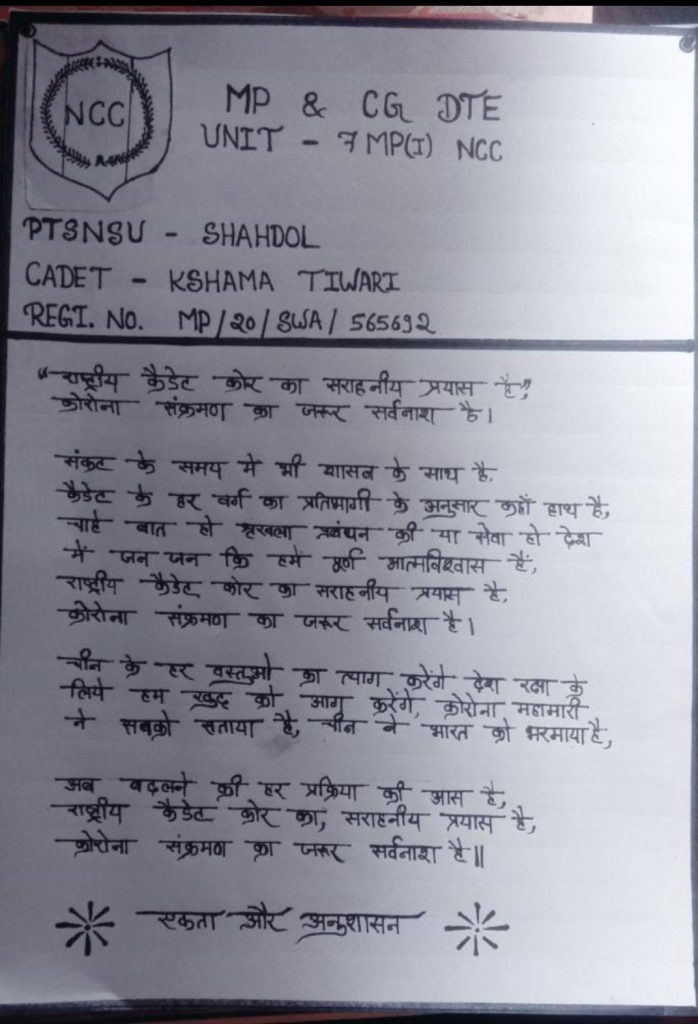 NCC
MP & CG DTE
UNIT - 7 MP(I) NCC
PTSNSU - SHAHDOL
CADET - KSHAMA TIWARI
REGI. NO. MP/20/SWA/565692
"राष्ट्रीय कैडेट कोर का सराहनीय प्रयास है",
कोरोना संक्रमण का जरूर सर्वनाश है।
संकट के समय में भी शासन के साथ है,
कैडेट के हर वर्ग का प्रतिभागी के अनुसार कहाँ हाथ है,
चाहे बात हो श्रृखला प्रबंधन की या सेवा हो देश
में जन जन कि हमें पूर्ण आत्मविश्वास हैं,
राष्ट्रीय कैडेट कोर का सराहनीय प्रयास है,
कोरोना संक्रमण का जरूर सर्वनाश है।
चीन के हर वस्तुओ का त्याग करेंगे देश रक्षा के
लिये हम खुद को आग करेंगे, कोरोना महामारी
ने सबको सताया है, चीन ने भारत को भरमाया है,
अब बदलने की हर प्रक्रिया की आस है,
राष्ट्रीय कैडेट कोर का, सराहनीय प्रयास है,
कोरोना संक्रमण का जरूर सर्वनाश है॥
एकता और अनुशासन